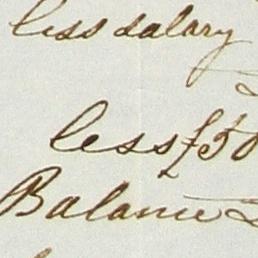 less salary
less £50
Balance